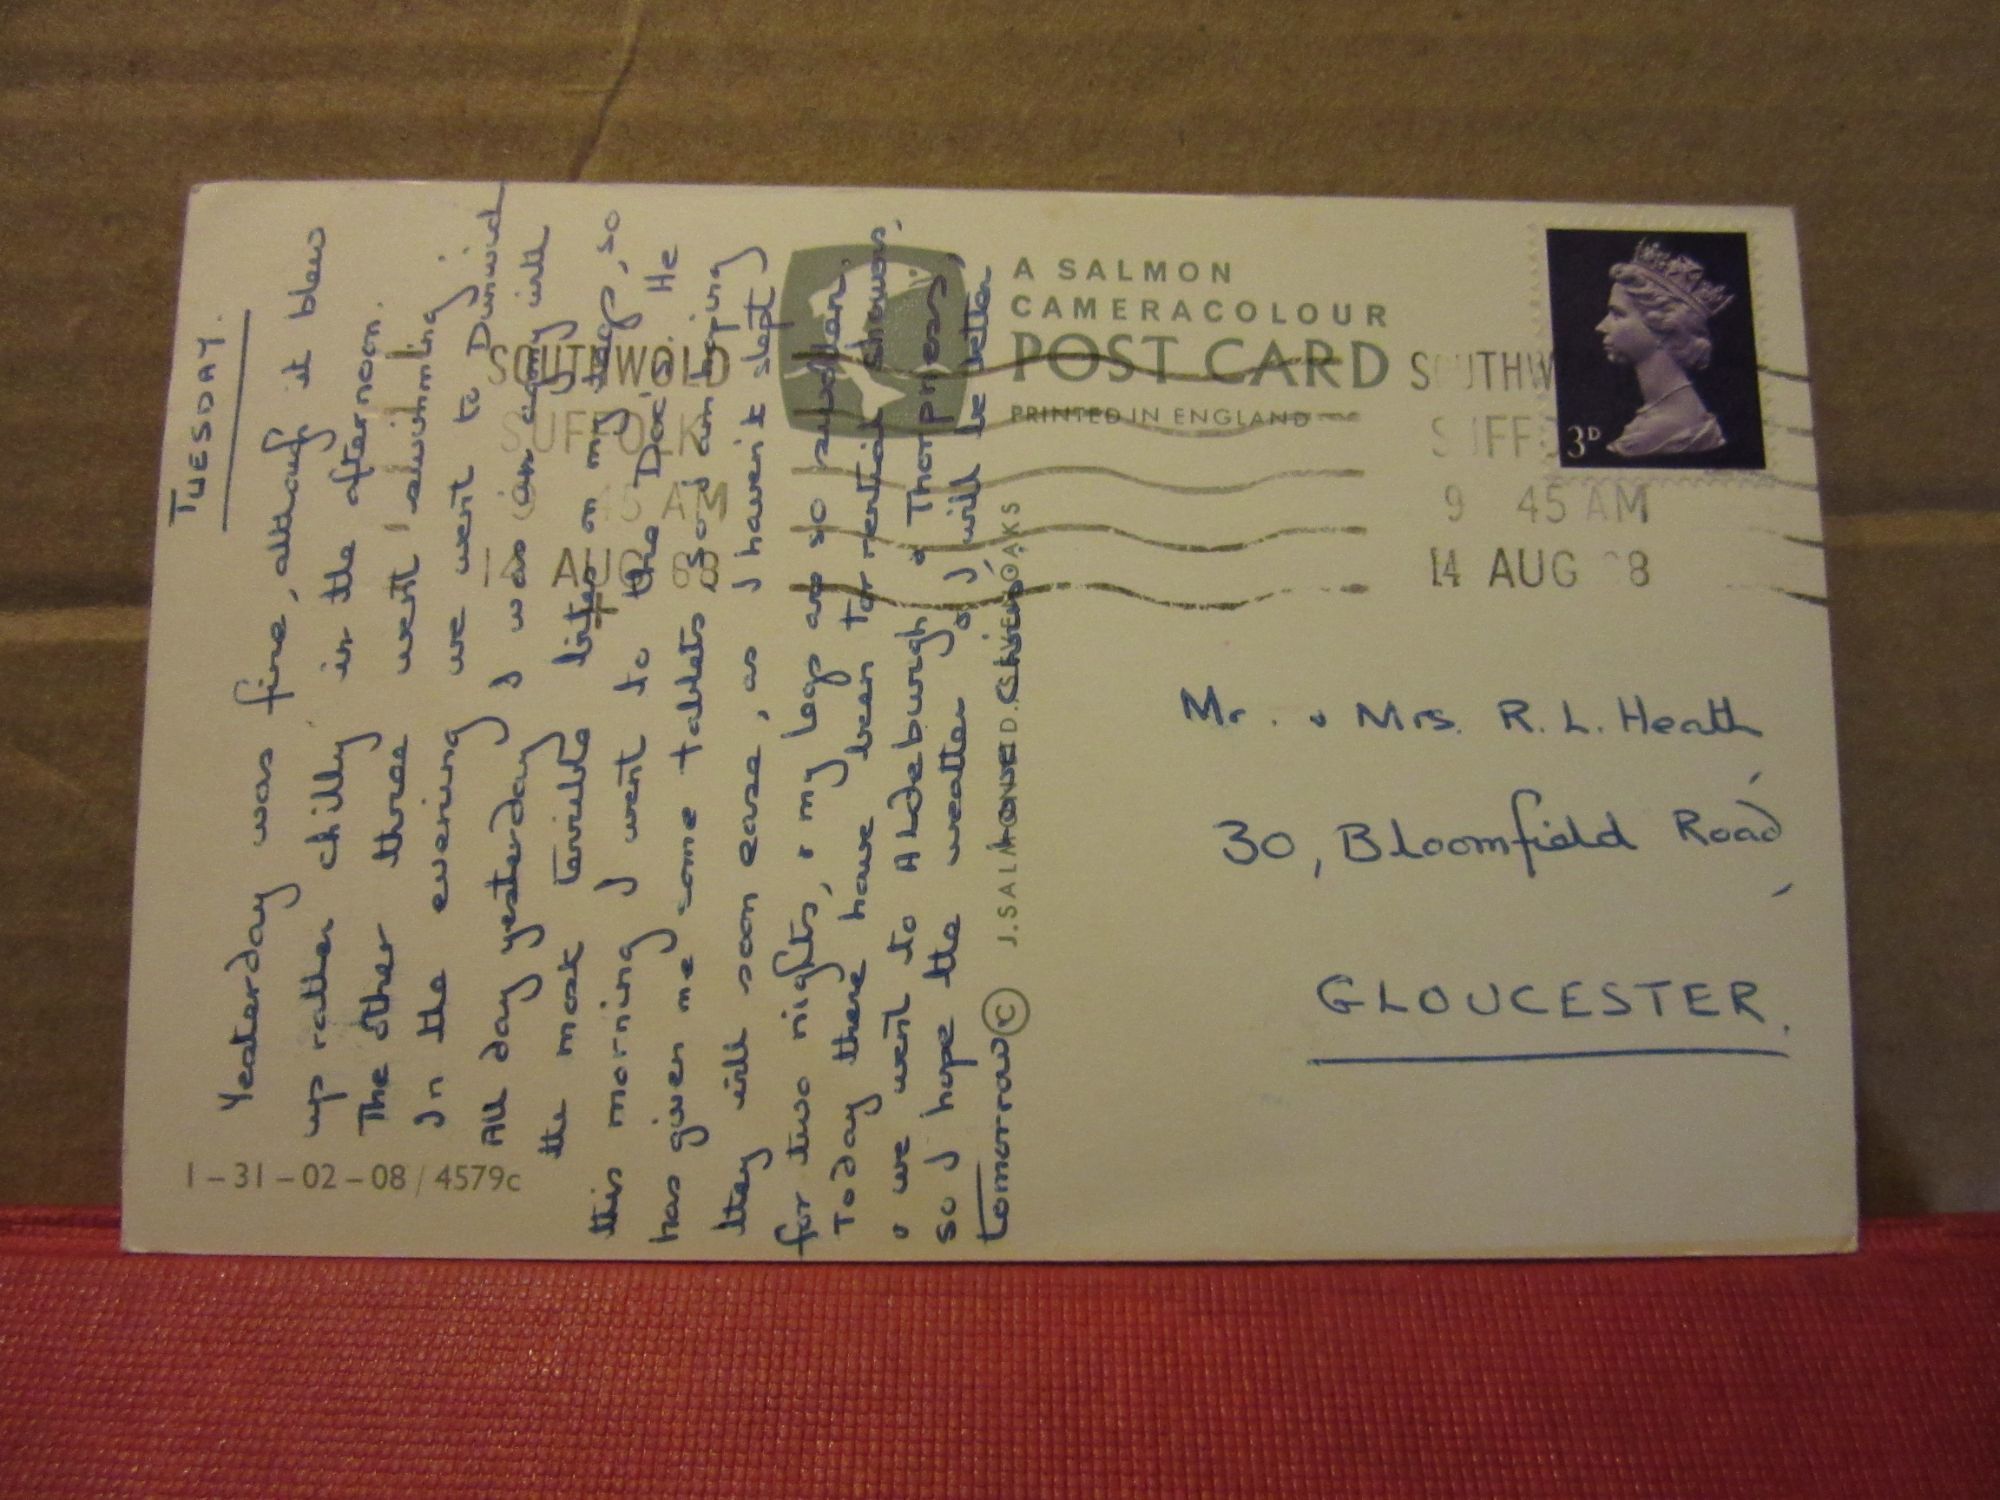 TUESDAY.
Yesterday was fine, although it blew
up rather chilly in the afternoon.
The other three went swimming.
In the evening we went to Dunwich
All day yesterday I was in agony with
the most terrible bites on my legs, so
this morning I went to the Doc's. He
has given me some tablets, so I am hoping
they will soon ease, as I haven't slept
for two nights, & my legs are so swollen.
Today there have been torrential showers,
& we went to Aldeburgh & Thorpness,
so I hope the weather & I will be better
tomorrow
1-31-02-08/4579c
A SALMON
CAMERACOLOUR
POST CARD
PRINTED IN ENGLAND
© J. SALMON LTD. SEVENOAKS
SOUTHWOLD
SUFFOLK
45 AM
14 AUG 68
SOUTHW
SUFF
9 45 AM
14 AUG 8
3D
Mr. & Mrs. R. L. Heath,
30, Bloomfield Road,
GLOUCESTER.